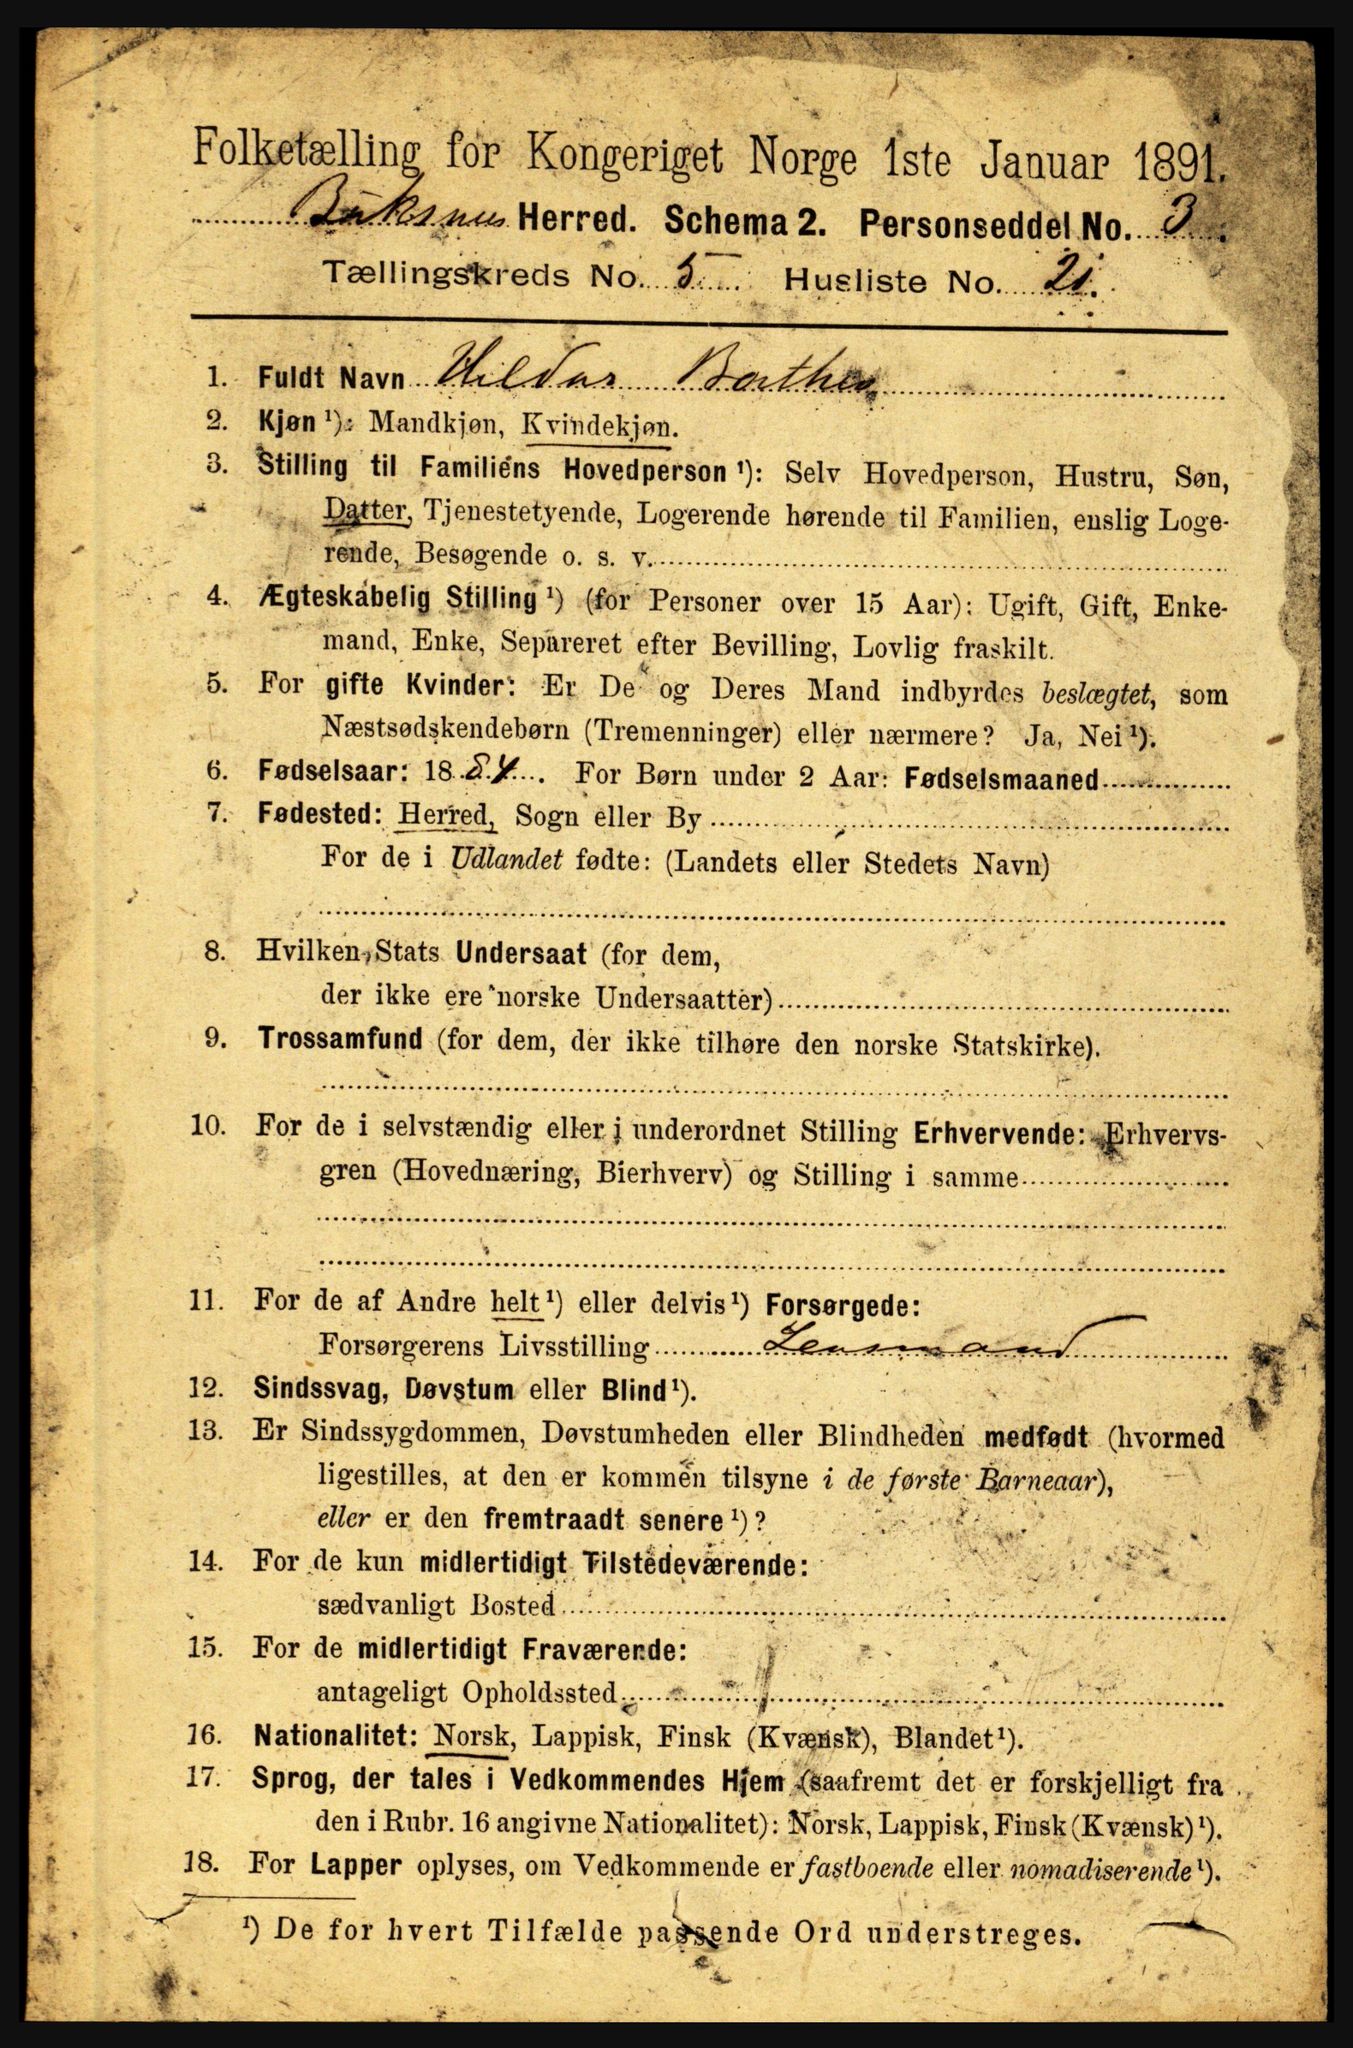 Folketælling for Kongeriget Norge 1ste Januar 1891.
Buksnes Herred. Schema 2. Personseddel No. 3.
Tællingskreds No. 5 Husliste No. 21.
1. Fuldt Navn Hildur Barthes
2. Kjøn ¹): Mandkjøn, Kvindekjøn.
3. Stilling til Familiens Hovedperson ¹): Selv Hovedperson, Hustru, Søn,
Datter, Tjenestetyende, Logerende hørende til Familien, enslig Loge-
rende, Besøgende o. s. v.
4. Ægteskabelig Stilling ¹) (for Personer over 15 Aar): Ugift, Gift, Enke-
mand, Enke, Separeret efter Bevilling, Lovlig fraskilt.
5. For gifte Kvinder: Er De og Deres Mand indbyrdes beslægtet, som
Næstsødskendebørn (Tremenninger) eller nærmere? Ja, Nei ¹).
6. Fødselsaar: 1884. For Børn under 2 Aar: Fødselsmaaned
7. Fødested: Herred, Sogn eller By
For de i Udlandet fødte: (Landets eller Stedets Navn)
8. Hvilken Stats Undersaat (for dem,
der ikke ere norske Undersaatter)
9. Trossamfund (for dem, der ikke tilhøre den norske Statskirke).
10. For de i selvstændig eller i underordnet Stilling Erhvervende: Erhvervs-
gren (Hovednæring, Bierhverv) og Stilling i samme
11. For de af Andre helt ¹) eller delvis ¹) Forsørgede:
Forsørgerens Livsstilling Lensmand
12. Sindssvag, Døvstum eller Blind ¹).
13. Er Sindssygdommen, Døvstumheden eller Blindheden medfødt (hvormed
ligestilles, at den er kommen tilsyne i de første Barneaar),
eller er den fremtraadt senere ¹)?
14. For de kun midlertidigt Tilstedeværende:
sædvanligt Bosted
15. For de midlertidigt Fraværende:
antageligt Opholdssted
16. Nationalitet: Norsk, Lappisk, Finsk (Kvænsk), Blandet ¹).
17. Sprog, der tales i Vedkommendes Hjem (saafremt det er forskjelligt fra
den i Rubr. 16 angivne Nationalitet): Norsk, Lappisk, Finsk (Kvænsk) ¹).
18. For Lapper oplyses, om Vedkommende er fastboende eller nomadiserende ¹).
¹) De for hvert Tilfælde passende Ord understreges.